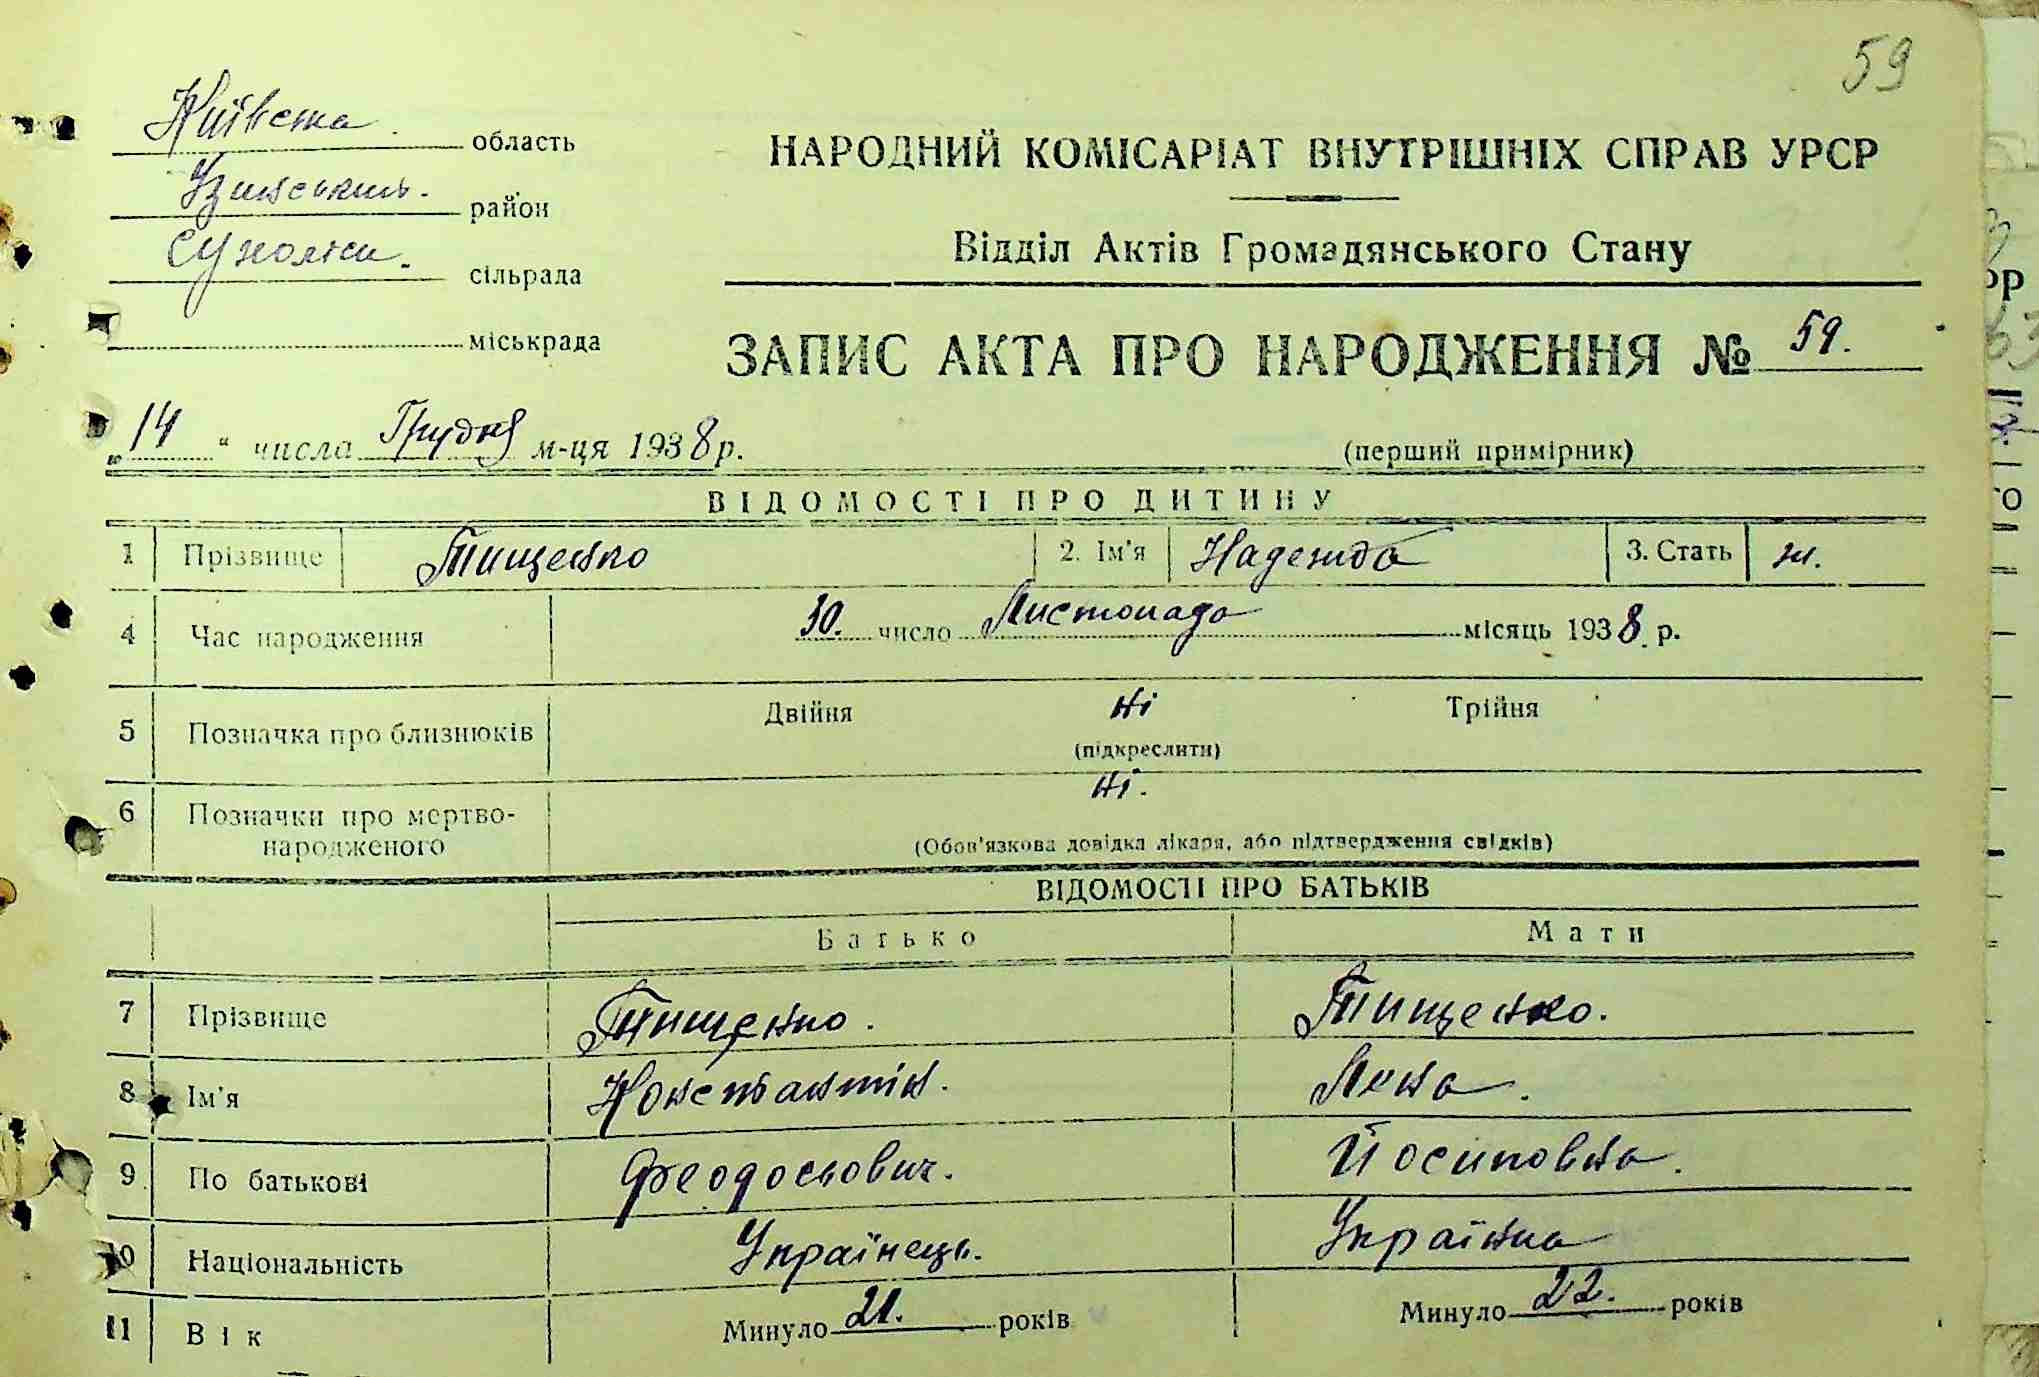 59
Київська область
Узинський район
Сухоліси сільрада
міськрада
НАРОДНИЙ КОМІСАРІАТ ВНУТРІШНІХ СПРАВ УРСР
Відділ Актів Громадянського Стану
ЗАПИС АКТА ПРО НАРОДЖЕННЯ № 59.
„14“ числа Грудня м-ця 1938 р.
(перший примірник)
ВІДОМОСТІ ПРО ДИТИНУ
1 Прізвище Тищенко 2. Ім'я Надежда 3. Стать ж.
4 Час народження 30. число Листопада місяць 1938 р.
5 Позначка про близнюків Двійня ні Трійня
(підкреслити)
6 Позначки про мертво-
народженого ні.
(Обов'язкова довідка лікаря, або підтвердження свідків)
ВІДОМОСТІ ПРО БАТЬКІВ
Батько Мати
7 Прізвище Тищенко. Тищенко.
8 Ім'я Константін. Лєна.
9 По батькові Феодосьович. Йосиповна.
10 Національність Українець. Українка
11 Вік Минуло 21. років Минуло 22. років